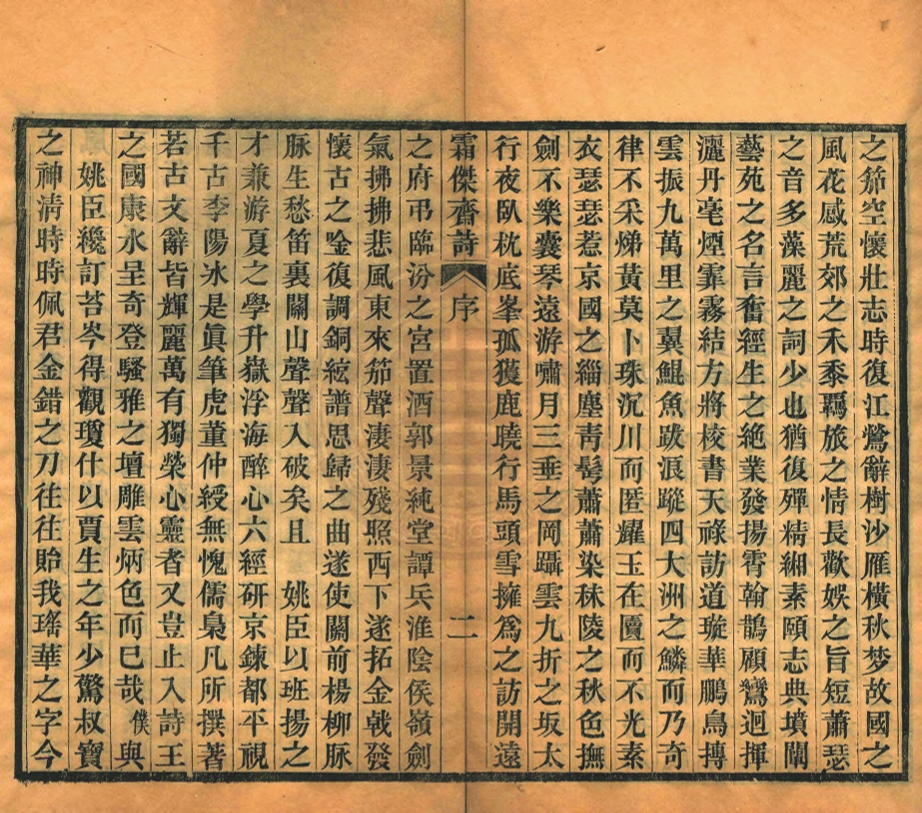 之笳空懷壯志時復江鶯辭樹沙雁橫秋梦故國之
風花感荒郊之禾黍羈旅之情長歡娛之旨短蕭瑟
之音多藻麗之詞少也猶復殫精緗素頤志典墳闡
藝苑之名言奮經生之絶業發揚霄翰鵲顧鸞迴揮
灑丹毫煙霏霧結方將校書天祿訪道璇華鵬鳥摶
雲振九萬里之翼鯤魚跋浪蹤四大洲之鱗而乃奇
律不采焍黃莫卜珠沉川而匿耀玉在匵而不光素
衣瑟瑟惹京國之緇塵靑髩蕭蕭染秣陵之秋色撫
劍不樂囊琴遠游嘯月三垂之岡躡雲九折之坂太
行夜臥枕底峯孤獲鹿曉行馬頭雪擁爲之訪開遠
霜傑齋詩 序 二
之府弔臨汾之宮置酒郭景純堂譚兵淮陰侯嶺劍
氣拂拂悲風東來笳聲淒淒殘照西下遂拓金戟發
懷古之唫復調銅絃譜思歸之曲遂使關前楊柳脈
脈生愁笛裏關山聲聲入破矣且 姚臣以班揚之
才兼游夏之學升嶽浮海醉心六經研京鍊都平視
千古李陽冰是眞筆虎董仲綬無愧儒梟凡所撰著
若古文辭皆輝麗萬有獨榮心靈者又豈止入詩王
之國康水呈奇登騷雅之壇雕雲炳色而已哉僕與
姚臣纔訂苔岑得觀瓊什以賈生之年少驚叔寶
之神淸時時佩君金錯之刀往往貽我瑤華之字今